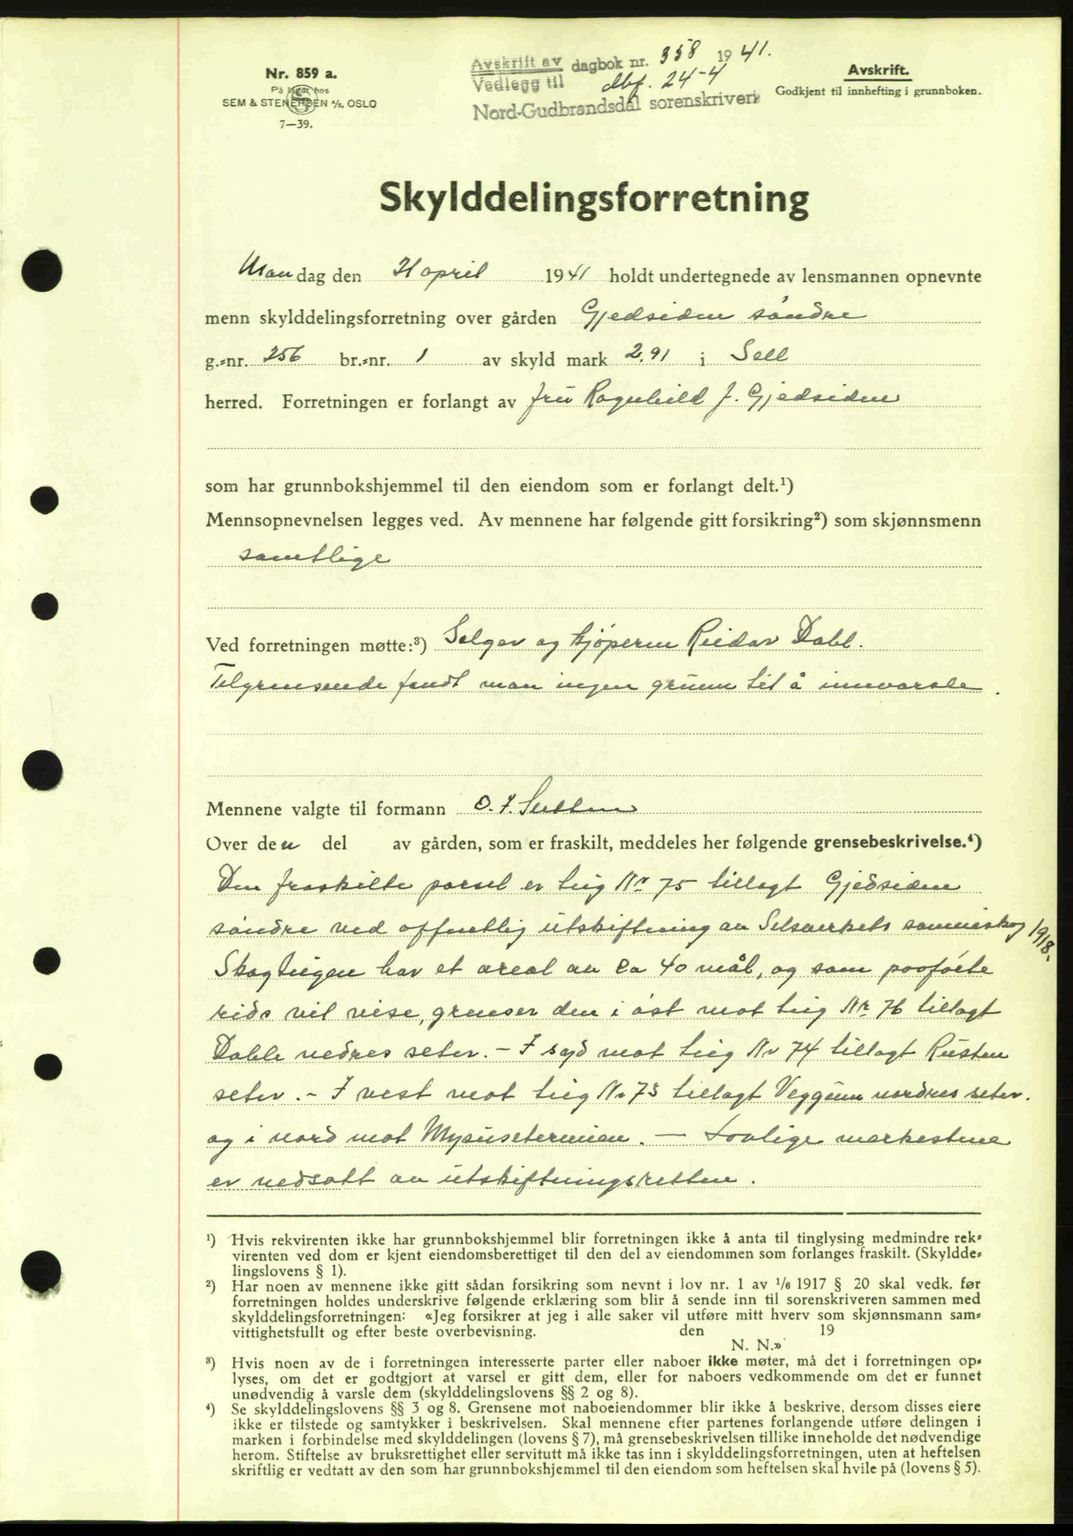 Nr. 859 a.
På lager hos
SEM & STENERSEN A/S, OSLO
7—39.
Avskrift av dagbok nr. 358 1941.
Vedlegg til dbf. 24-4
Nord-Gudbrandsdal sorenskriveri
Avskrift.
Godkjent til innhefting i grunnboken.
Skylddelingsforretning
Mandag den 21 april 1941 holdt undertegnede av lensmannen opnevnte
menn skylddelingsforretning over gården Gjedsiden søndre
g.-nr. 256 br.-nr. 1 av skyld mark 2,91 i Sell
herred. Forretningen er forlangt av fru Ragnhild J. Gjedsiden
som har grunnbokshjemmel til den eiendom som er forlangt delt.¹)
Mennsopnevnelsen legges ved. Av mennene har følgende gitt forsikring²) som skjønnsmenn
samtlige
Ved forretningen møtte:³) Selger og kjøperen Reidar Dahl.
Tilgrensende fandt man ingen grunn til å innvarsle.
Mennene valgte til formann O. J.
Over den del av gården, som er fraskilt, meddeles her følgende grensebeskrivelse.⁴)
Den fraskilte parsel er teig Nr 75 tillagt Gjedsiden
søndre ved offentlig utskiftning av Selsverkets sameieskog 1918.
Skogteigen har et areal av ca 40 mål, og som påførte
rids vil vise, grenser den i øst mot teig Nr 76 tillagt
Dahle nedres seter. - I syd mot teig Nr 74 tillagt Rusten
seter. - I vest mot teig Nr 73 tillagt Veggum nordres seter.
og i nord mot Mysusetermoen. — Lovlige merkestene
er nedsatt av utskiftningsretten.
¹) Hvis rekvirenten ikke har grunnbokshjemmel blir forretningen ikke å anta til tinglysing medmindre rek-
virenten ved dom er kjent eiendomsberettiget til den del av eiendommen som forlanges fraskilt. (Skyldde-
lingslovens § 1).
²) Har noen av mennene ikke gitt sådan forsikring som nevnt i lov nr. 1 av ¹/₆ 1917 § 20 skal vedk. før
forretningen holdes underskrive følgende erklæring som blir å sende inn til sorenskriveren sammen med
skylddelingsforretningen: «Jeg forsikrer at jeg i alle saker vil utføre mitt hverv som skjønnsmann sam-
vittighetsfullt og efter beste overbevisning. den 19
N. N.»
³) Hvis noen av de i forretningen interesserte parter eller naboer ikke møter, må det i forretningen op-
lyses, om det er godtgjort at varsel er gitt dem, eller for naboers vedkommende om det er funnet
unødvendig å varsle dem (skylddelingslovens §§ 2 og 8).
⁴) Se skylddelingslovens §§ 3 og 8. Grensene mot naboeiendommer blir ikke å beskrive, dersom disses eiere
ikke er tilstede og samtykker i beskrivelsen. Skal mennene efter partenes forlangende utføre delingen i
marken i forbindelse med skylddelingen (lovens § 7), må grensebeskrivelsen tillike inneholde det nødvendige
herom. Stiftelse av bruksrettighet eller servitutt må ikke tas inn i skylddelingsforretningen, uten at heftelsen
skriftlig er vedtatt av den som har grunnbokshjemmel til den eiendom som heftelsen skal hvile på (lovens § 5).